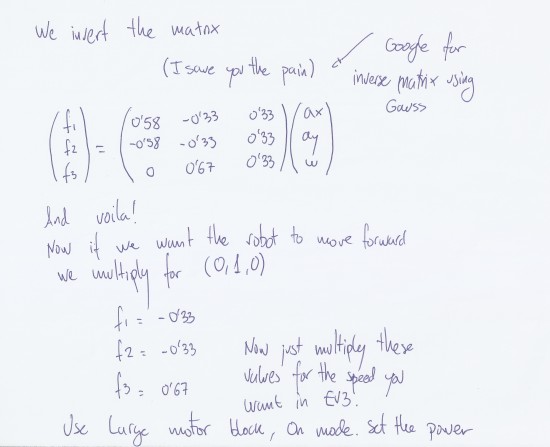 We invert the matrix
(I save you the pain)
Google for
inverse matrix using
Gauss
(f1 f2 f3) = (0'58 -0'33 0'33
-0'58 -0'33 0'33
0 0'67 0'33) (ax ay w)
And voila!
Now if we want the robot to move forward
we multiply for (0,1,0)
f1 = -0'33
f2 = -0'33
f3 = 0'67
Now just multiply these
values for the speed you
want in EV3.
Use Large motor block, On mode. Set the power